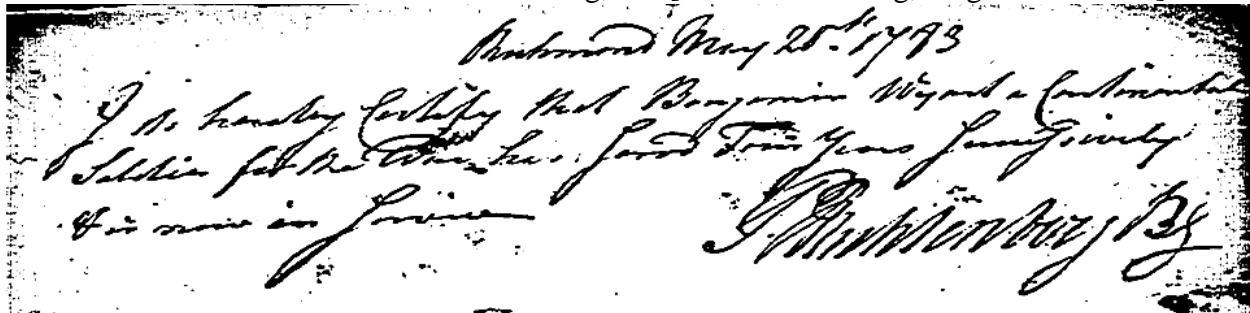 Richmond May 20th. 1783
I do hereby Certify that Benjamin Wyant a Continental
Soldier for the War has served Four Years Successively
& is now in Service
P. Muhlenburg BG